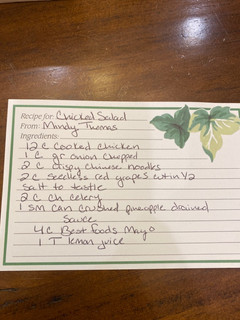 Recipe for: Chicked Salad
From: Mandy Thomas
Ingredients:
12 C cooked chicken
1 C gr onion chopped
2 C crispy chinese noodles
2 C seedless red grapes cut in 1/2
Salt to tastle
2 C ch celery
1 sm can crushed pineapple drained
Sauce
4 C Best Foods Mayo
1 T lemon juice